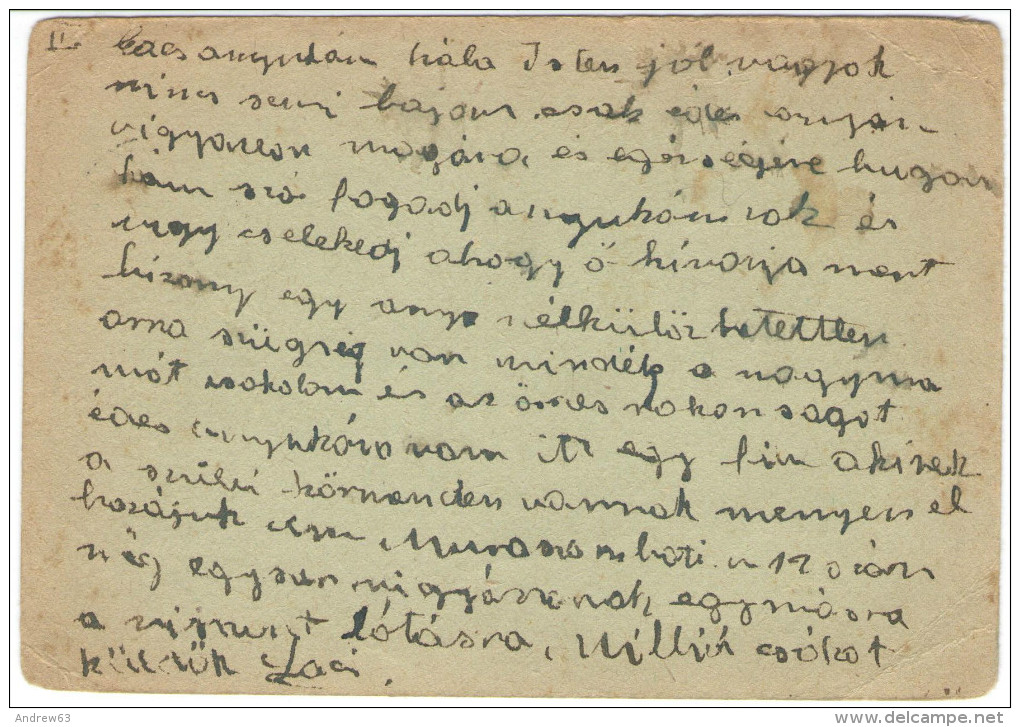 II.
hála Isten jól vagyok
nincs semi bajom csak édes anyám
vigyázzon magára és egésségére hugom
kám szó fogadj anyukámnak és
ugy cselekedj ahogy ő kívánja mert
bizony egy anya nélkülöz hetettlen
arra szügség van mindég a nagyma
mát csokolom és az öszes rokonságot
édes anyukára van itt egy fiu akinek
a szülei körmenden vannak menyen el
hozájuk Muraszombati u 12 szám
még egyszer vigyázzanak egymásra
a viszont látásra, Millió csókot
küldök Laci.
Andrew63
delcampe.net